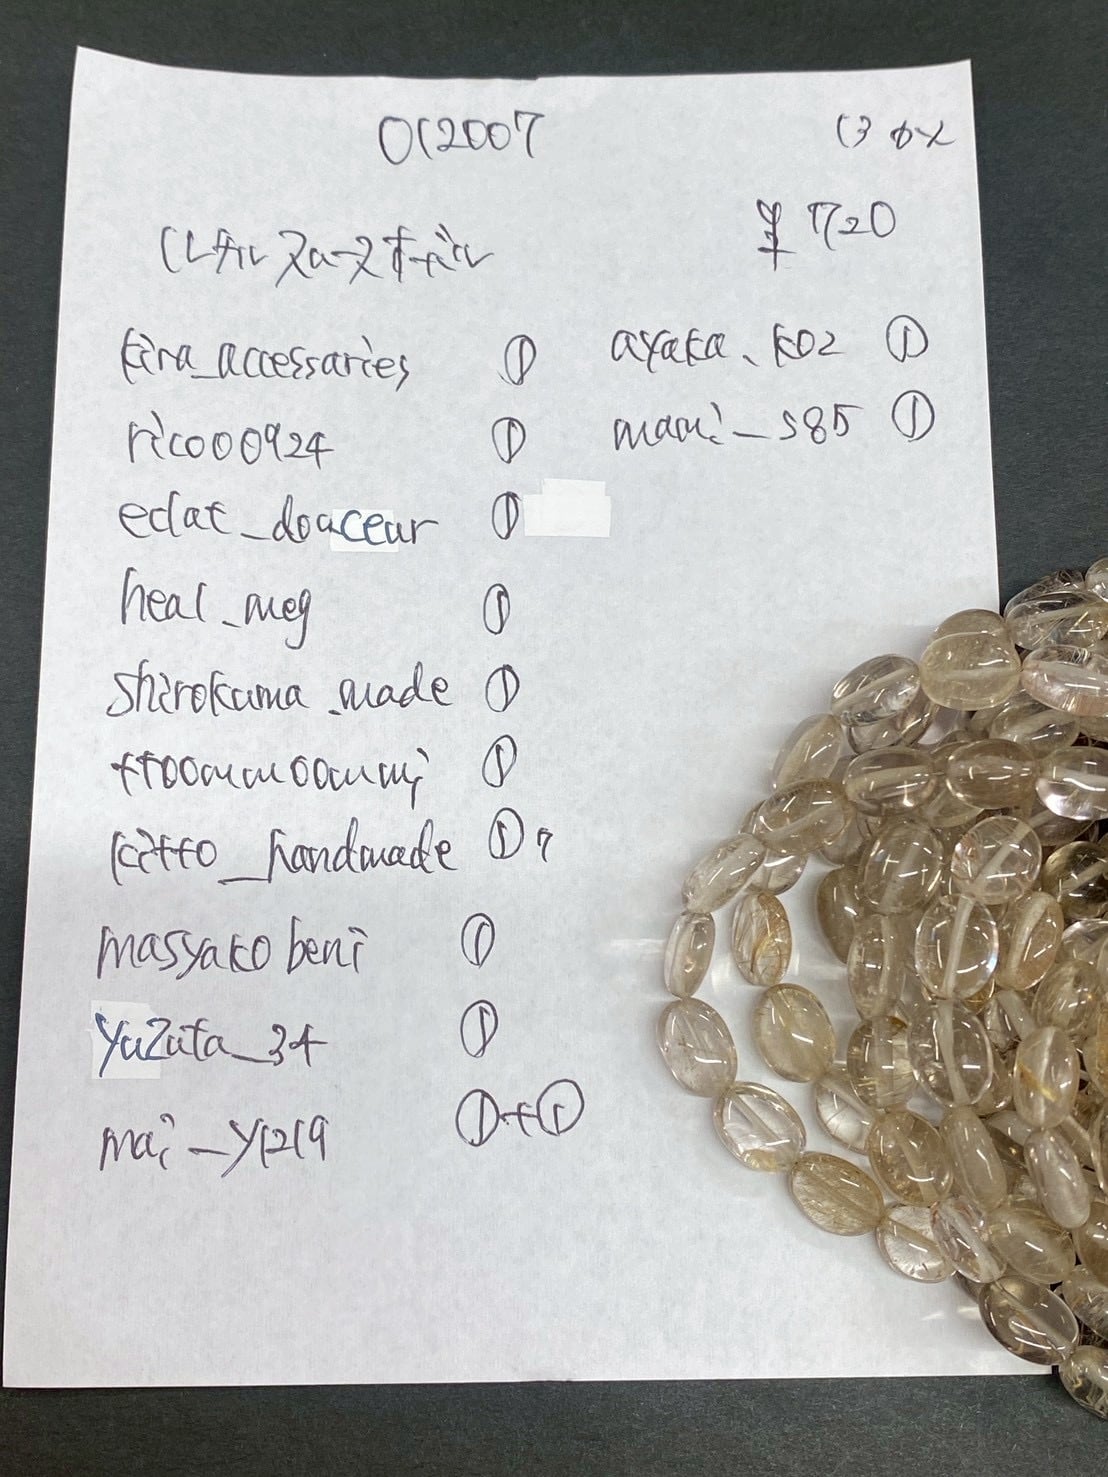 012007
13 本
¥ 1720
ルチルクォーツオーバル
kira_accessaries ①
rico00924 ①
eclat_douceur ①
heal_meg ①
shirokuma_made ①
ttoommoommj ①
kitto_handmade ①
masyako beni ①
yuzuta_34 ①
mai_y1219 ①+①
ayaka.k02 ①
mami_s85 ①